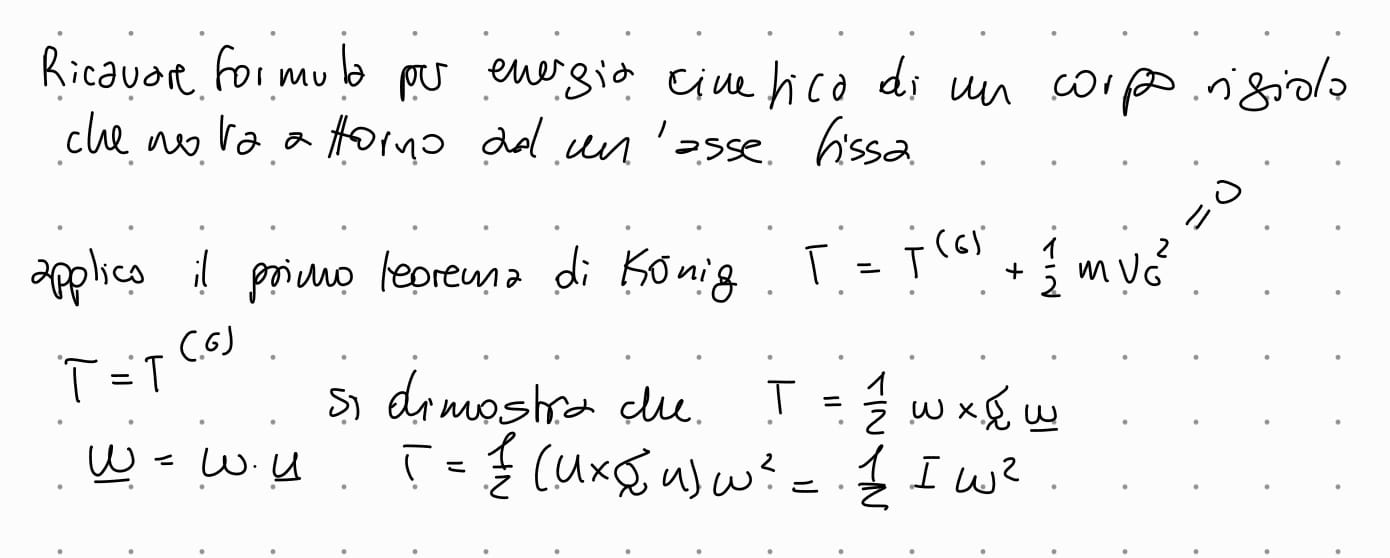 Ricavare formula per energia cinetica di un corpo rigido
che ruota attorno ad un'asse fissa
applico il primo teorema di König T = T^(G) + 1/2 m v_G^2 = 0
T = T^(G)
si dimostra che T = 1/2 ω × σ ω
ω = ω · u T = 1/2 (u × σ u) ω^2 = 1/2 I ω^2